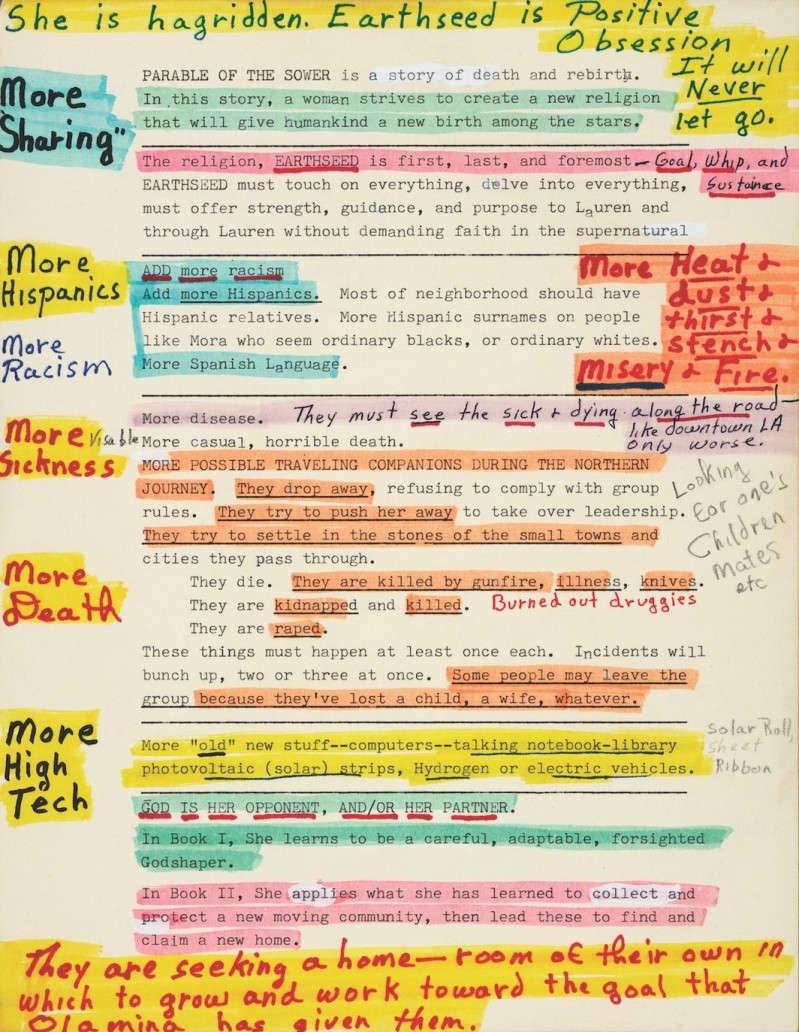 She is hagridden. Earthseed is Positive
Obsession
It will
Never
let go.
More
"Sharing"
PARABLE OF THE SOWER is a story of death and rebirth.
In this story, a woman strives to create a new religion
that will give humankind a new birth among the stars.
The religion, EARTHSEED is first, last, and foremost — Goal, Whip, and
Sustaince
EARTHSEED must touch on everything, delve into everything,
must offer strength, guidance, and purpose to Lauren and
through Lauren without demanding faith in the supernatural
More
Hispanics
More
Racism
ADD more racism
Add more Hispanics. Most of neighborhood should have
Hispanic relatives. More Hispanic surnames on people
like Mora who seem ordinary blacks, or ordinary whites.
More Spanish Language.
More Heat &
dust &
thirst &
stench &
misery & Fire.
More Visable
Sickness
More disease. They must see the sick & dying along the road—
like downtown LA
only worse.
More casual, horrible death.
MORE POSSIBLE TRAVELING COMPANIONS DURING THE NORTHERN
JOURNEY. They drop away, refusing to comply with group
rules. They try to push her away to take over leadership.
They try to settle in the stones of the small towns and
cities they pass through.
Looking
For one's
Children
mates
etc
More
Death
They die. They are killed by gunfire, illness, knives.
They are kidnapped and killed. Burned out druggies
They are raped.
These things must happen at least once each. Incidents will
bunch up, two or three at once. Some people may leave the
group because they've lost a child, a wife, whatever.
More
High
Tech
More "old" new stuff--computers--talking notebook-library
photovoltaic (solar) strips, Hydrogen or electric vehicles.
Solar Roll,
Sheet
Ribbon
GOD IS HER OPPONENT, AND/OR HER PARTNER.
In Book I, She learns to be a careful, adaptable, forsighted
Godshaper.
In Book II, She applies what she has learned to collect and
protect a new moving community, then lead these to find and
claim a new home.
They are seeking a home — room of their own in
which to grow and work toward the goal that
Olamina has given them.